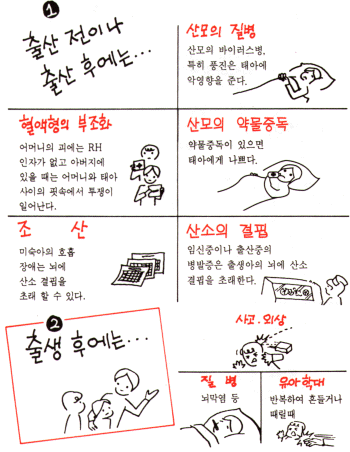 1
출산 전이나
출산 후에는…
산모의 질병
산모의 바이러스병,
특히 풍진은 태아에
악영향을 준다.
혈액형의 부조화
어머니의 피에는 RH
인자가 없고 아버지에
있을 때는 어머니와 태아
사이의 핏속에서 투쟁이
일어난다.
산모의 약물중독
약물중독이 있으면
태아에게 나쁘다.
조 산
미숙아의 호흡
장애는 뇌에
산소 결핍을
초래 할 수 있다.
산소의 결핍
임신중이나 출산중의
병발증은 출생아의 뇌에 산소
결핍을 초래한다.
2
출생 후에는…
사고·외상
질 병
뇌막염 등
유아학대
반복하여 흔들거나
때릴때